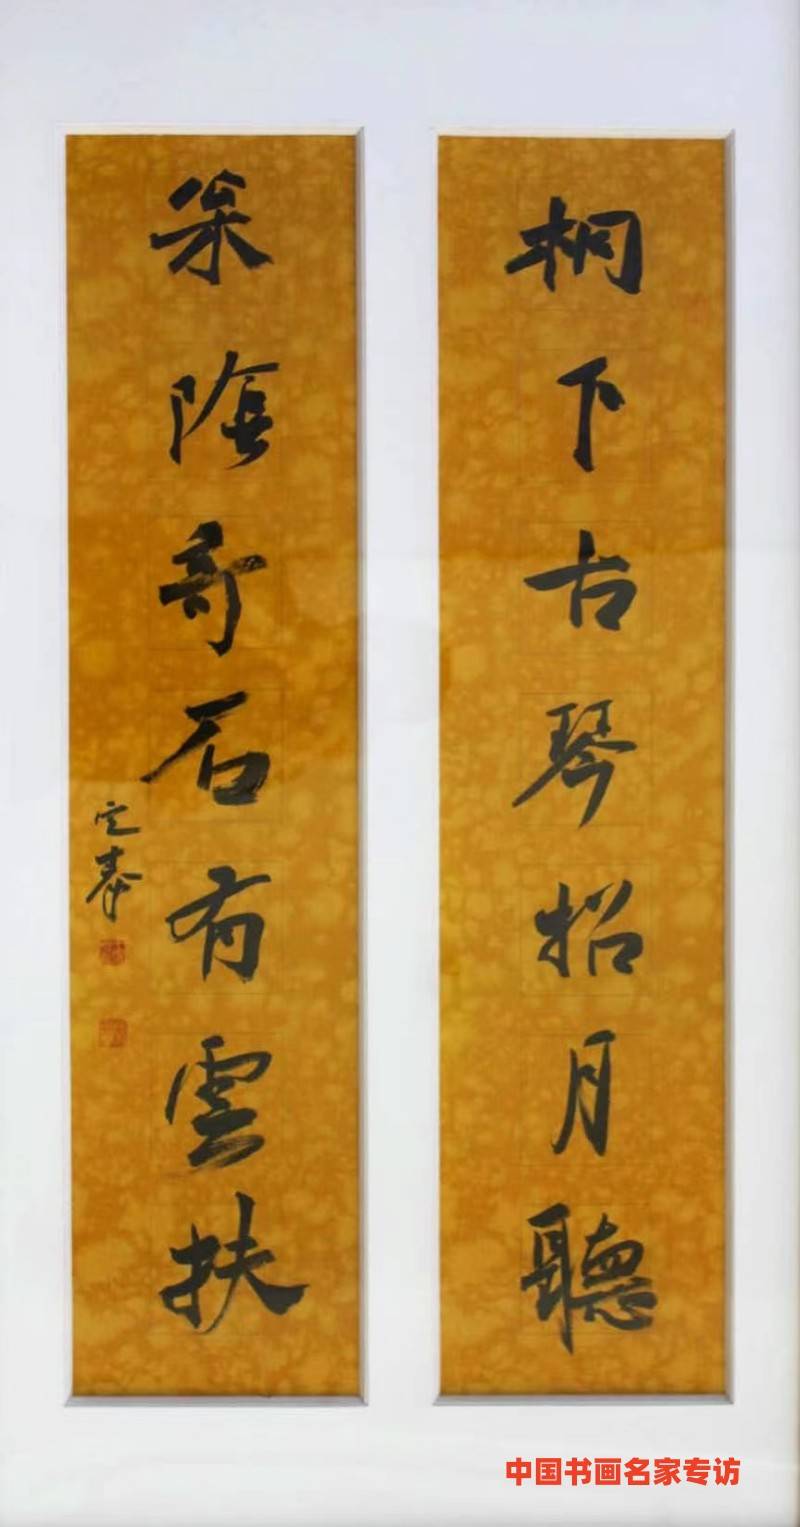 桐下古琴招月聽
枀陰奇石有雲扶
定
中国书画名家专访